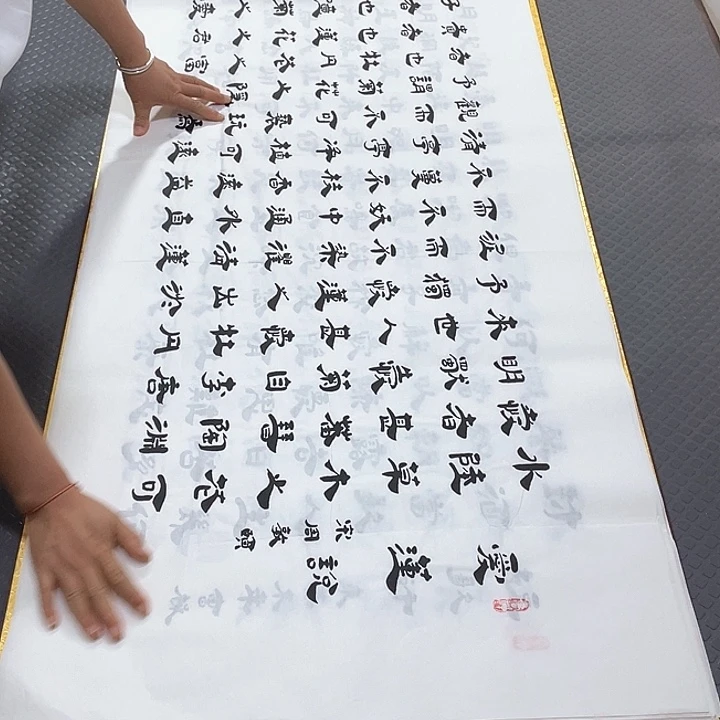 愛蓮說宋周敦頤
水陸草木之花可
愛者甚蕃晉陶淵
明獨愛菊自李唐
來世人甚愛牡丹
予獨愛蓮之出於
淤而不染濯清漣
而不妖中通外直
不蔓不枝香遠益
清亭亭淨植可遠
觀而不可褻玩焉
予謂菊花之隱
者也牡丹花之富
貴者也蓮花之君
子者也菊之愛